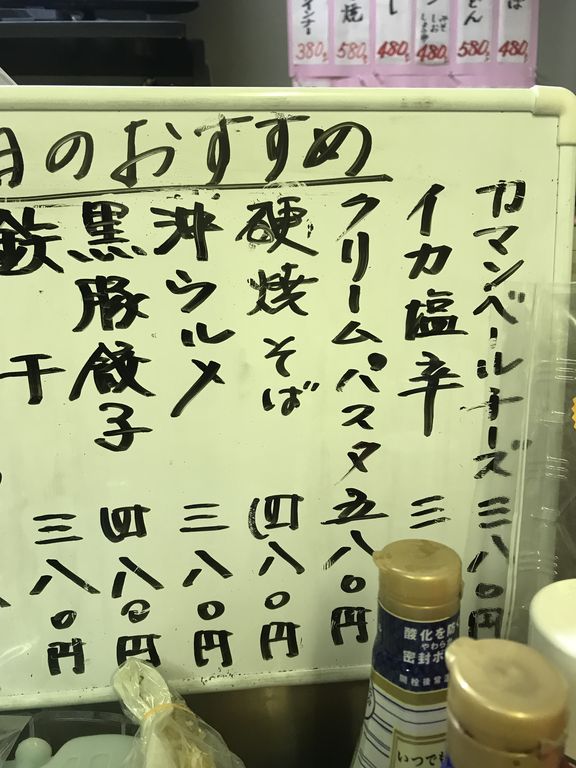 380
焼
580.
し
480
480
どん
580
ば
480
月のおすすめ
カマンベールチーズ 三八〇円
イカ塩辛 三
クリームパスタ 五八〇円
硬焼そば 四八〇円
沖ウルメ 三八〇円
黒豚餃子 四八〇円
鉄
干 三八〇円
酸化を防
やわら
密封ボ
開栓後常温
いつでも